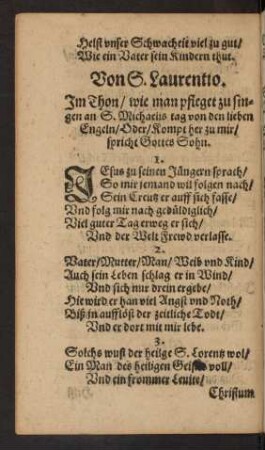 Helst vnser Schwacheit viel zu gut/
Wie ein Vater sein Kindern thut.
Von S. Laurentio.
Im Thon/ wie man pfleget zu sin-
gen an S. Michaelis tag von den lieben
Engeln/ Oder/ Kompt her zu mir/
spricht Gottes Sohn.
1.
JEsus zu seinen Jüngern sprach/
So mir jemand wil folgen nach/
Sein Creutz er auff sich fasse/
Vnd folg mir nach gedüldiglich/
Viel guter Tag erweg er sich/
Vnd der Welt Frewd verlasse.
2.
Vater/ Mutter/ Man/ Weib vnd Kind/
Auch sein Leben schlag er in Wind/
Vnd sich nur drein ergebe/
Hie wird er han viel Angst vnd Noth/
Biß jn aufflöß der zeitliche Todt/
Vnd er dort mit mir lebe.
3.
Solchs wust der heilge S. Lorentz wol/
Ein Man des heiligen Geistes voll/
Vnd ein frommer Leuite/
Christum